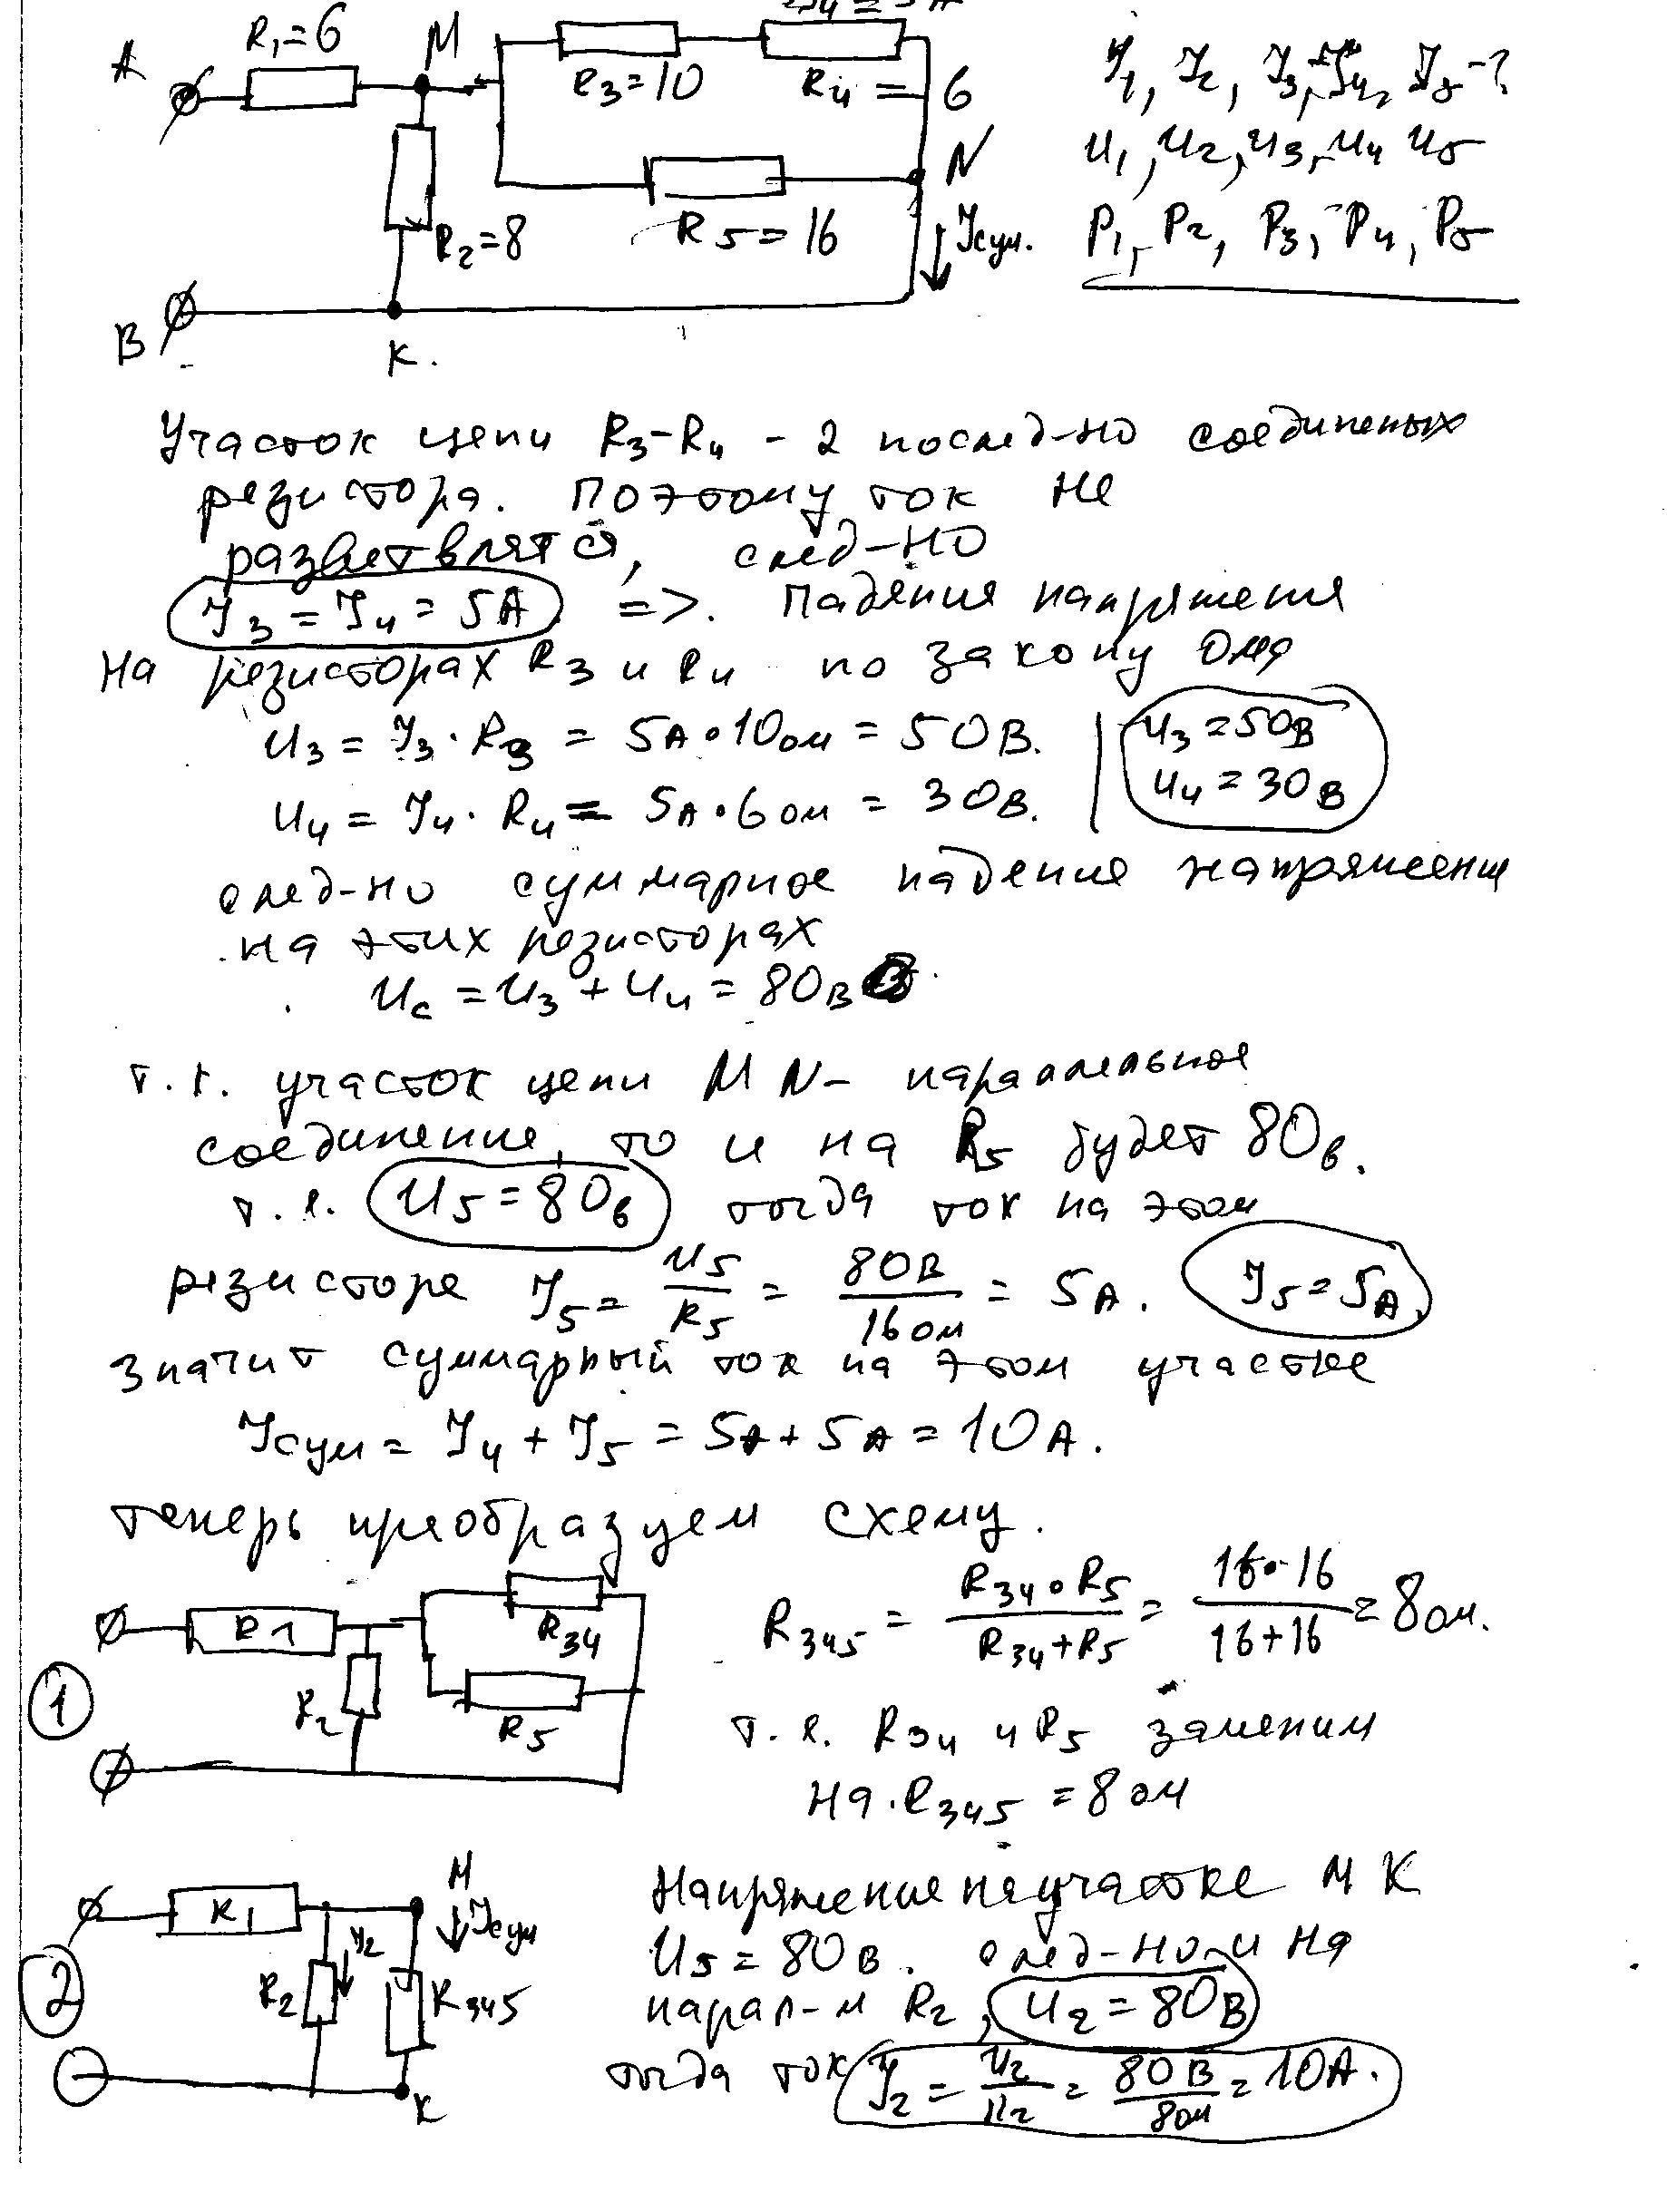 R1=6
M
J4=5A
A
R3=10
R4=6
J1, J2, J3, J4, J5-?
N
U1, U2, U3, U4 U5
R2=8
R5=16
Jсум.
P1, P2, P3, P4, P5
B
K.
Участок цепи R3-R4 - 2 послед-но соединеных
резистора. Поэтому ток не
разветвлятся, след-но
J3 = J4 = 5A => Падения напряжения
на резисторах R3 и R4 по закону Ома
U3 = J3 · R3 = 5A · 10 ом = 50В. | U3 = 50В
U4 = J4 · R4 = 5A · 6 ом = 30В. | U4 = 30В
след-но суммарное падение напряжения
на этих резисторах
Uc = U3 + U4 = 80В
т.к. участок цепи MN - параллельное
соединение, то и на R5 будет 80в.
т.е. U5 = 80в тогда ток на этом
резисторе J5 = U5/R5 = 80В/16ом = 5A. J5 = 5A
значит суммарный ток на этом участке
Jсум = J4 + J5 = 5A + 5A = 10A.
теперь преобразуем схему.
R1
R34
R345 = R34 · R5 / R34 + R5 = 16 · 16 / 16 + 16 = 8 ом.
1
R2
R5
т.е. R34 и R5 заменим
на R345 = 8 ом
M
R1
Jсум
Напряжение на участке MK
J2
U5 = 80В. след-но и на
2
R2
R345
парал-м R2, U2 = 80В
K
тогда ток J2 = U2/R2 = 80В/8ом = 10A.